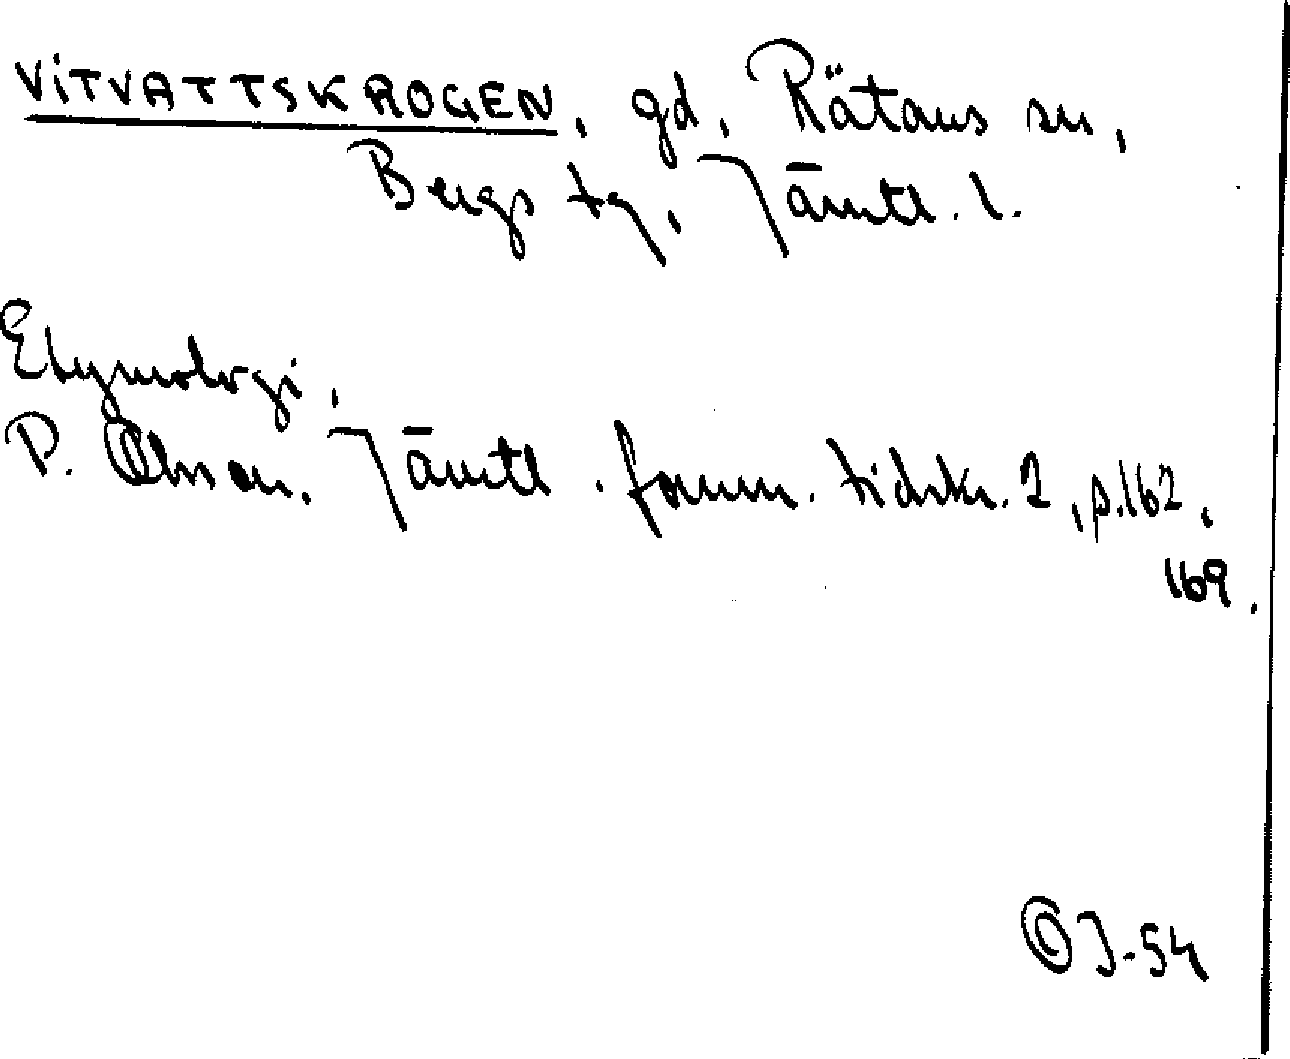 VITVATTSKROGEN, gd, Rätans sn,
Bergs tg, Jämtl. l.
Etymologi,
P. Olsson, Jämtl. fornm. tidskr. 2, p. 162,
169.